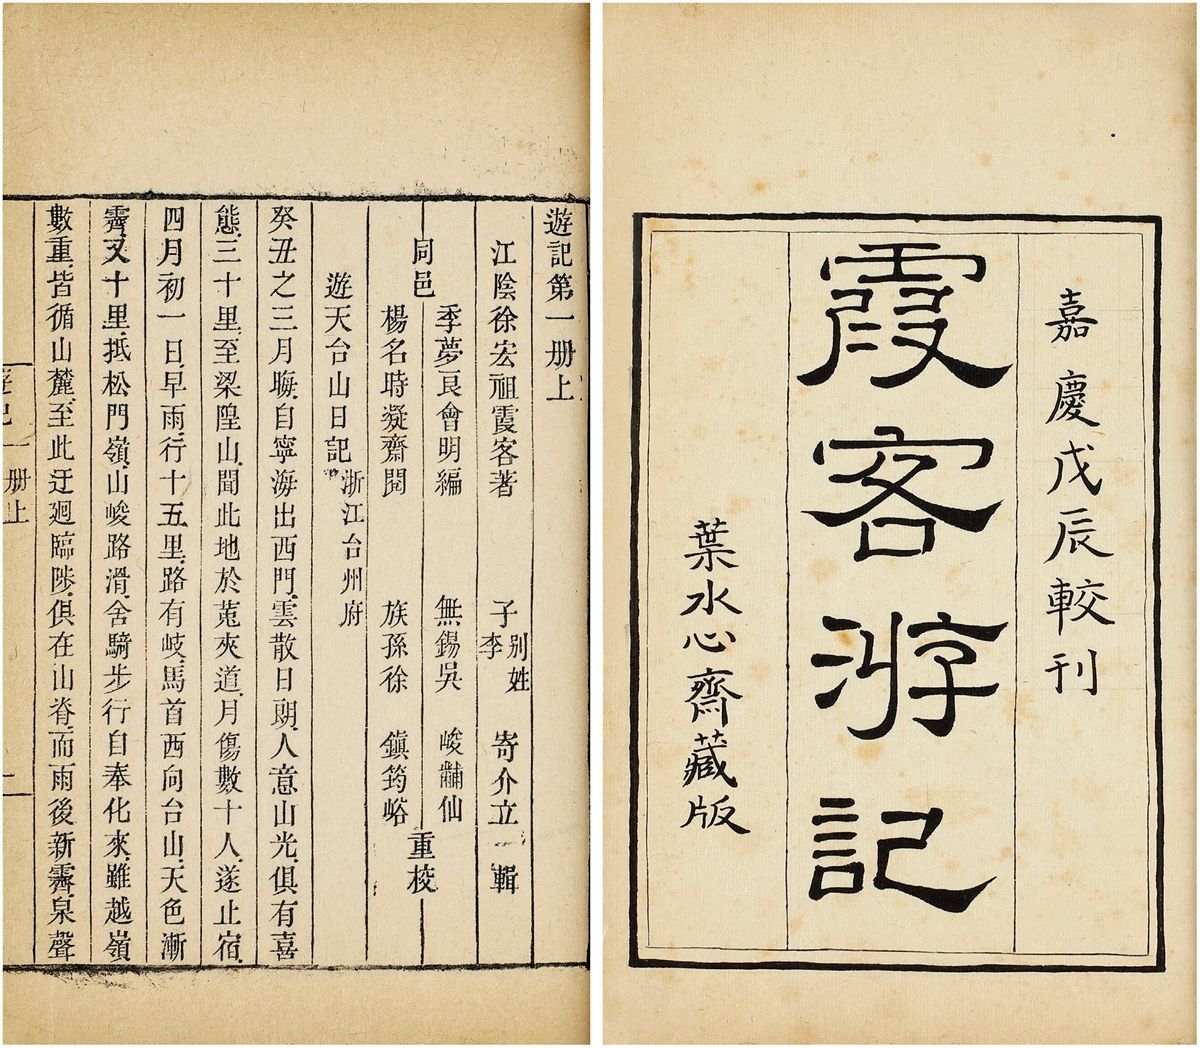 嘉慶戊辰較刊
霞客游記
葉水心齋藏版
遊記第一册上
江陰徐宏祖霞客著 子李別姓 寄介立 輯
同邑 季夢良會明編 無錫吳 峻黼仙 重校
楊名時凝齋閱 族孫徐 鎮筠峪
遊天台山日記浙江台州府
癸丑之三月晦自寧海出西門雲散日朗人意山光俱有喜
態三十里至梁隍山聞此地於菟夾道月傷數十人遂止宿
四月初一日早雨行十五里路有岐馬首西向台山天色漸
霽又十里抵松門嶺山峻路滑舍騎步行自奉化來雖越嶺
數重皆循山麓至此迂迴臨陟俱在山脊而雨後新霽泉聲
遊記 一册上 一